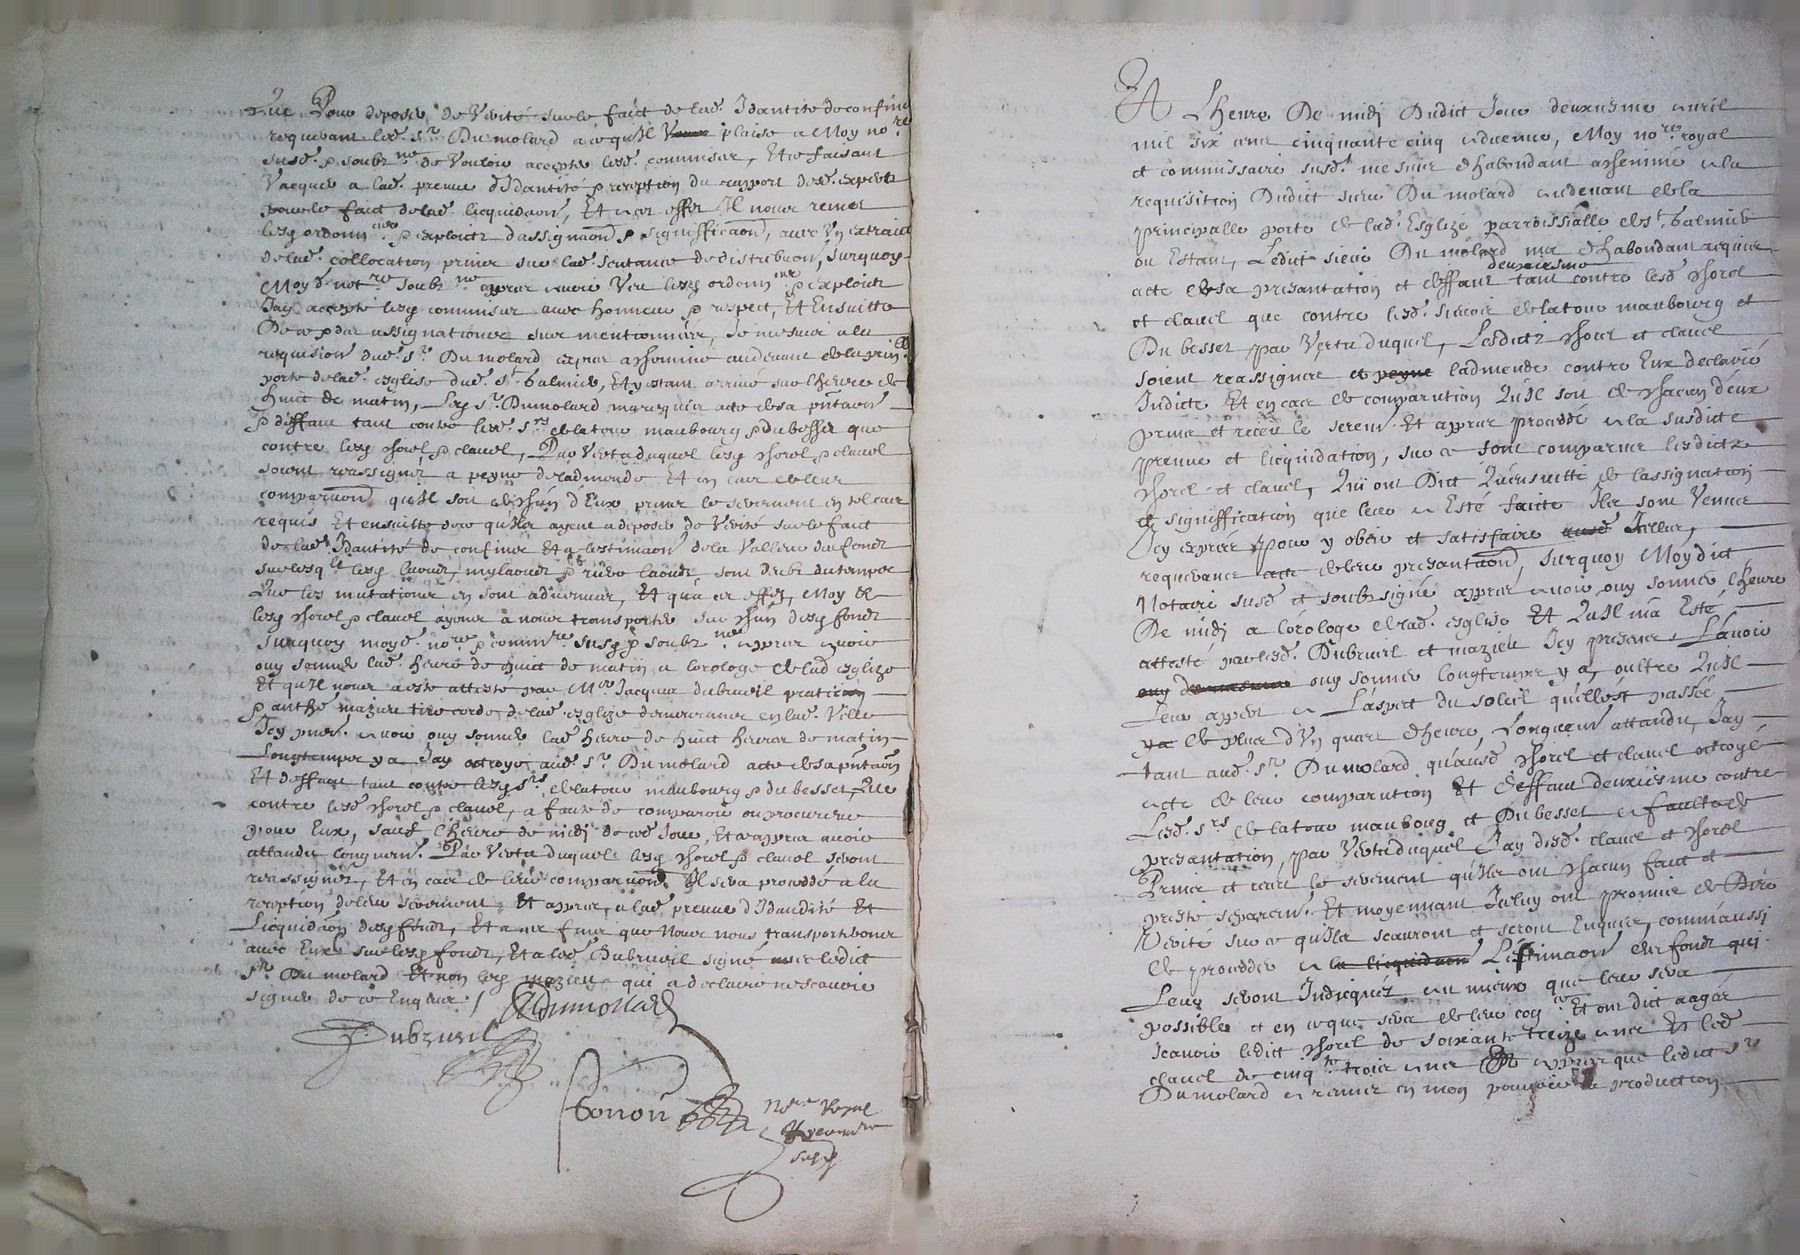 que Pour deposer de Verité sur le faict de lad. Idantité de confins
requerant led. sr. Dumolard a ce qu'Il plaise a Moy nore
susd. & soubzne de Vouloir accepter lesd. commises, Et ce faisant
Vacquer a lad. preuve d'Idantité & reception du rapport desd. expertz
pour le faict de lad. licquidaon, Et a cet effet Il nous remet
lesq ordonnces & exploictz d'assignaon & signifficaon, avec Un extraict
de lad. collocation prinse sur lad. sentance de distribuon, surquoy
Moyd. notre soubzne appres avoir Veu lesq ordonnces & exploictz
Jay accepté lesq commises avec honneur & respect, Et Ensuitte
De ce & des assignationes sus mentionnées, Je me suis a la
requision dud. sr. Dumolard exprés achemine audevant de la prinlle
porte de lad. esglise dud. st. Galmier, Et y estant arrivé sur l'heure de
huict de matin, Led sr. Dumolard ma requis acte de sa pntaon
& deffaut tant contre lesd. srs de latour maubourg & du besset que
contre lesq chorel & clavel, Par Vertu duquel lesq chorel & clavel
soient reassignés a peyne de ladmende Et en cas de leur
comparuon qu'Il soit de chun d'Eux prins le serement en tel cas
requis Et ensuitte de ce qu'Ils ayent a deposer de Verité sur le faict
de lad. Idantité de confins Et a lestimaon de la Valleur des fondz
Que les mutationes en sont advenues, Et qu'a cet effet, Moy &
lesq chorel & clavel ayons à nous transporter sur chun desq fondz
surquoy moyd. nore & commre susd & soubzne appres avoir
ouy sonner lad. heure de huict de matin a lorologe de lad esglize
Et qu'Il nous a esté attesté par Mre Jacques dubrueil praticien
& anthe mazieu tire corde de lad. esglize demeurants en lad. Ville
Icy pnts. avoir ouy sonner lad. heure de huict heures de matin
Longtemps y a Jay octroyé aud. sr. Dumolard acte de sa pntaon
Et deffaut tant contre lesq srs de latour maubourg & du besset, que
contre lesd. chorel & clavel, a faute de comparoir ou procureur
pour Eux, sauf l'heure de midi de ced. Jour, Et appres avoir
attandu longuemt. Par Vertu duquel lesq chorel & clavel seront
reassignés, Et en cas de leur comparuon Il sera proceddé a la
reception de leur serement, Et appres, a lad. preuve d'Idandité Et
Licquidaon desq fondz, Et a ces fins que Nous nous transporterons
avec Eux sur lesq fondz, Et a led. Dubrueil signé avec ledict
sr. Dumolard Et non led mazieu qui a declairé ne scavoir
signer de ce Enquis. /
Dumollard
Dubrueil
Nore Royal
A L'heure De midi Dudict Jour deuxiesme avril
mil six cens cinquante cinq advenue, Moy nore royal
et commissaire susd. me suis d'habondant acheminé a la
requisition Dudict sieur Du molard audevant de la
principalle porte de lad. Esglize parroissialle de st. Galmier
ou Estant, Ledict sieur Du molard ma d'habondant requis
acte de sa presantation et deffaut deuxiesme tant contre lesd chorel
et clavel que contre lesd. sieurs de latour maubourg et
Du besset, par Vertu duquel, Lesdictz chorel et clavel
soient reassignés et peyne ladmende contre Eux declairée
Indicte Et en cas de comparution Qu'Il soit de chacun d'eux
prins et receu le seremt. Et appres proceddé a la susdicte
preuve et licquidation, sur ce sont comparus lesdictz
chorel et clavel, Qui ont Dict Qu'ensuitte de lassignation
et signiffication que leur a Esté faicte Ils sont Venus
Icy exprés pour y obeir et satisfaire
requerants acte de leur presantaon, surquoy Moydict
Notaire susd. et soubzsigné appres avoir ouy sonner l'heure
De midi a lorologe de lad. esglise Et Qu'Il m'a Esté
attesté par lesd. Dubrueil et mazieu Icy presents L'avoir
ouy ouy sonner Longtemps y a, oultre Qu'Il
Leur appert a L'aspect du soleil qu'elle est passée
ya de plus d'Un quart d'heure, Longuemt attandu, Jay
tant aud. sr. Dumolard qu'ausd. chorel et clavel octroyé
acte de leur comparution Et Deffaut deuxiesme contre
Lesd. srs de latour maubourg et Du besset a faulte de
presantation, par Vertu duquel Jay desd. clavel et chorel
Prins et receu le serement qu'Ils ont chacun faict et
presté separemt. Et moyennant Iceluy ont promis de Dire
Verité sur ce qu'Ils scauront et seront Enquis, comm'aussi
de procedder a la licquidaon L'estimaon des fondz qui
Leur seront Indicquez au mieux que leur sera
possible et en ce que sera de leur cognce Et ont dict aagés
scavoir ledict chorel de soixante treize ans Et led
clavel de cinqte trois ans Et appres que ledict sr
Dumolard a remis en mon pouvoir la production